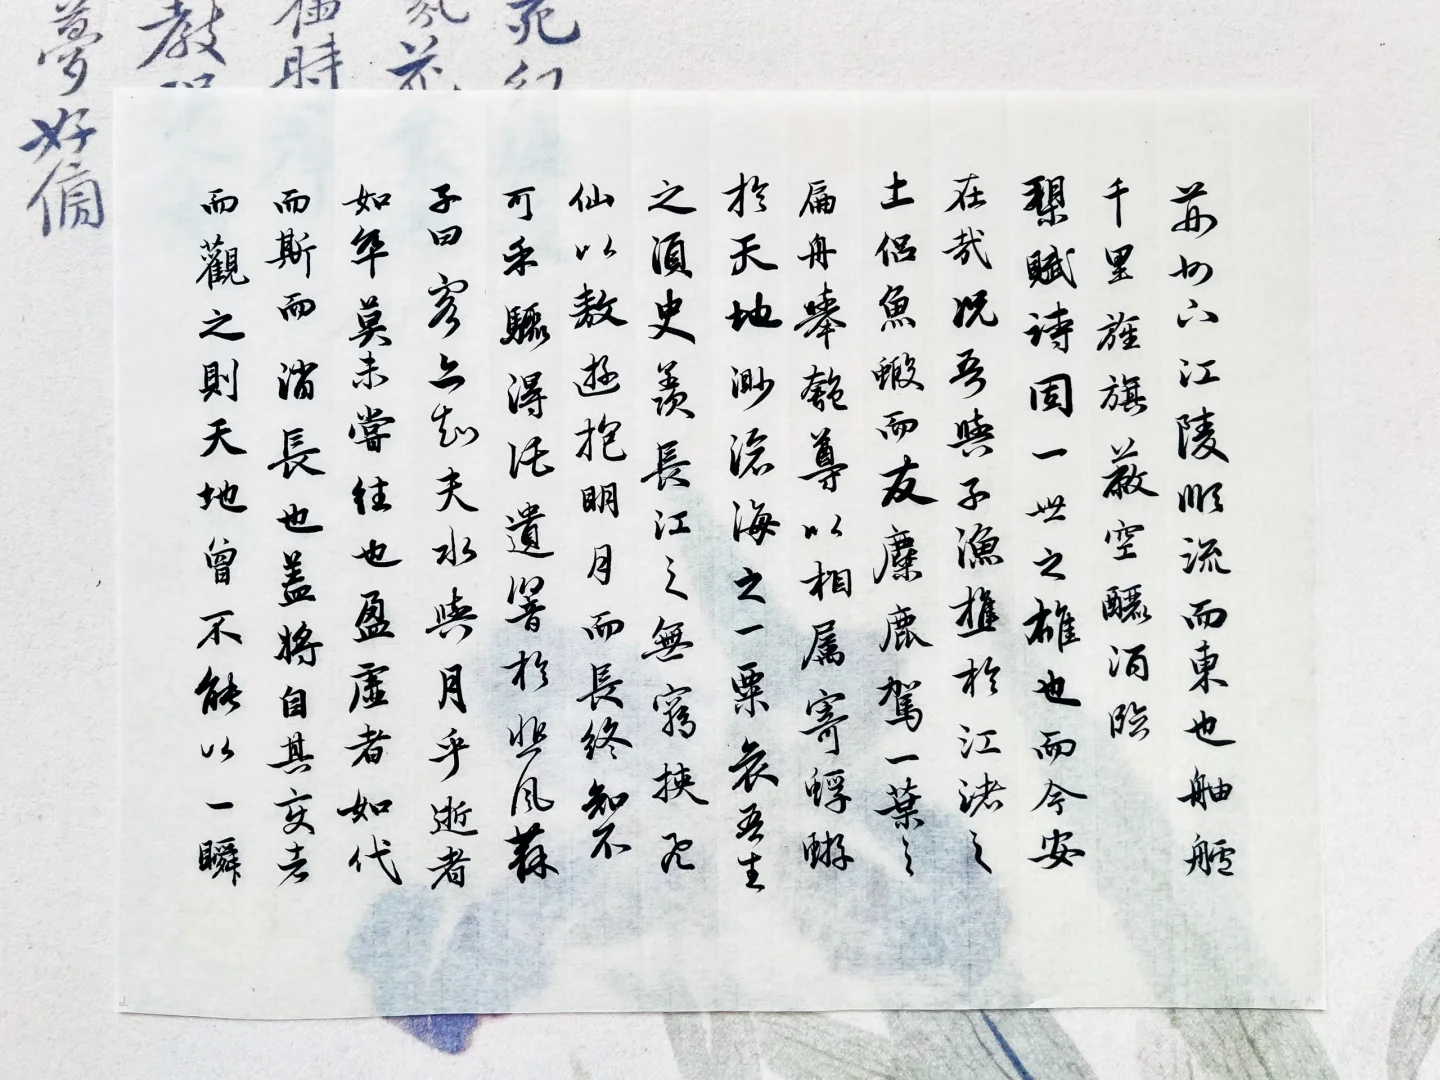 荊州下江陵順流而東也舳艫
千里旌旗蔽空釃酒臨
槊賦詩固一世之雄也而今安
在哉況吾與子漁樵於江渚之
土侶魚蝦而友麋鹿駕一葉之
扁舟舉匏尊以相属寄蜉蝣
於天地渺滄海之一粟哀吾生
之須臾羨長江之無窮挾飛
仙以敖遊抱明月而長終知不
可乎驟得託遺響於悲風蘇
子曰客亦知夫水與月乎逝者
如卒莫未嘗往也盈虛者如代
而斯而消長也盖將自其变者
而觀之則天地曾不能以一瞬
花
時
教
夢好